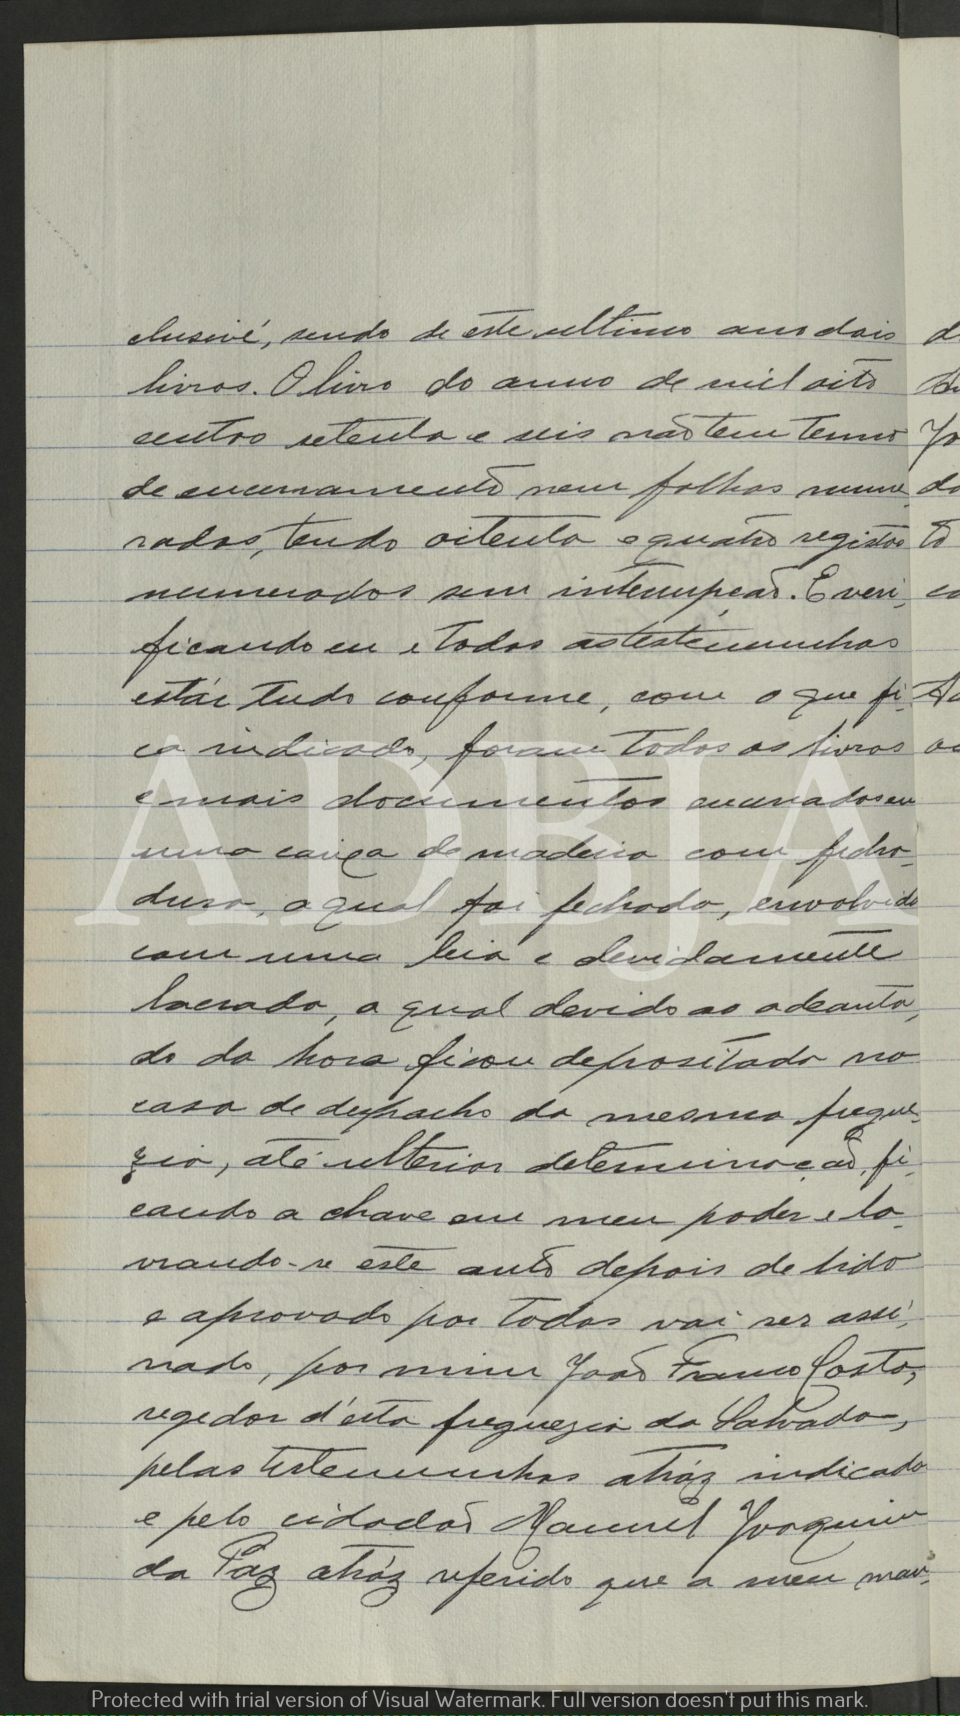 clusivé, sendo de este ultimo anno dois
livros. O livro do anno de mil oito
centos setenta e seis não tem termo
de encerramento nem folhas nume-
radas, tendo oitenta e quatro registos
numerados sem interrupção. E veri-
ficando eu e todas as testemunhas
estár tudo conforme, com o que fi-
ca indicado, foram todos os livros
e mais documentos encerrados em
uma caixa de madeira com fecha-
dura, a qual foi fechada, envolvida
com uma leia e devidamente
lacrada, a qual devido ao adeanta-
do da hora ficou depositada na
casa de despacho da mesma fregue-
zia, até ulterior determinação, fi-
cando a chave em meu poder e la-
vrando-se este auto depois de lido
e aprovado por todos vai ser assi-
nado, por mim João Franco Costa,
regedor d'esta freguezia da Salvada,
pelas testemunhas atráz indicado
e pelo cidadão Manuel Joaquim
da Paz atráz referido que a meu man-
ADBJA
Protected with trial version of Visual Watermark. Full version doesn't put this mark.